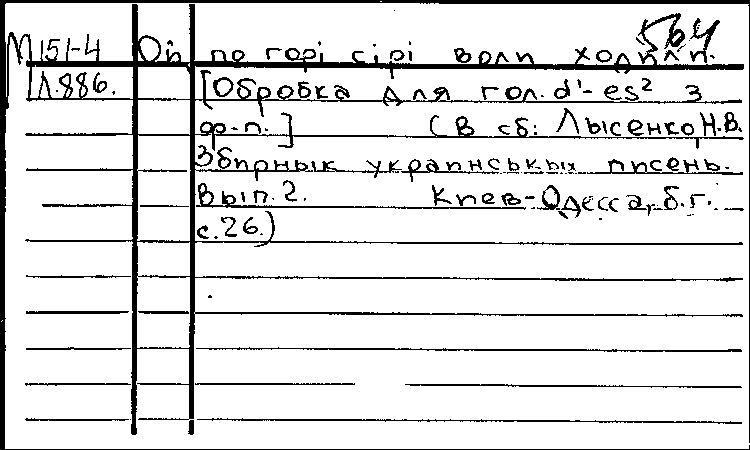 564
М151-4 Ой по горі сірі воли ходили.
Л.886. [Обробка для гол. d'-es² з
ф-п.] (В сб: Лысенко, Н.В.
Збирнык украинськых писень.
Вып. 2. Киев-Одесса, б.г.
с.26.)